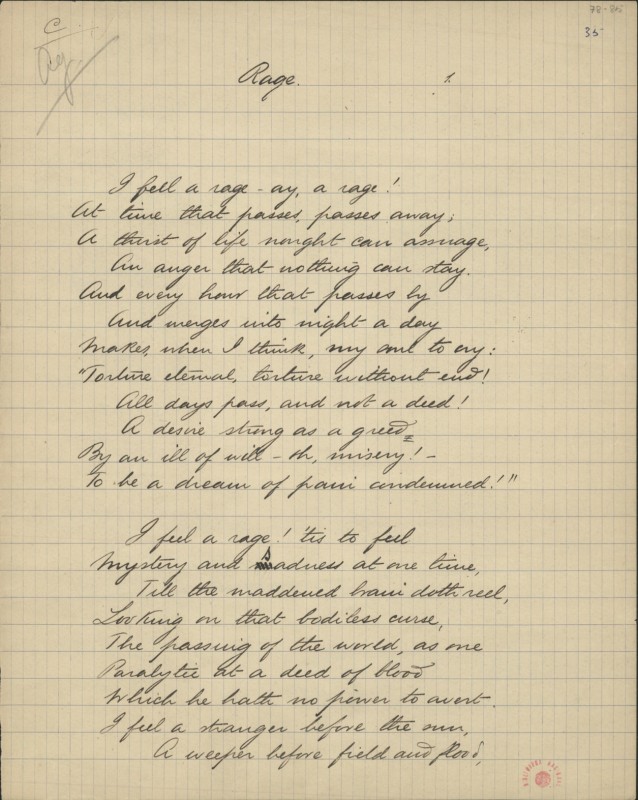 78-35
35
C
Rage.
1.
I feel a rage - ay, a rage!
At time that passes, passes away;
A thirst of life nought can assuage,
An anger that nothing can stay.
And every hour that passes by
And merges into night a day
Makes, when I think, my soul to cry:
"Torture eternal, torture without end!
All days pass, and not a deed!
A desire strong as a greed
By an ill of will - oh, misery! -
To be a dream of pain condemned!"
I feel a rage! 'tis to feel
Mystery and sadness at one time,
Till the maddened brain doth reel,
Looking on that bodiless curse,
The passing of the world, as one
Paralytic at a deed of blood
Which he hath no power to avert.
I feel a stranger before the sun,
A weeper before field and flood,